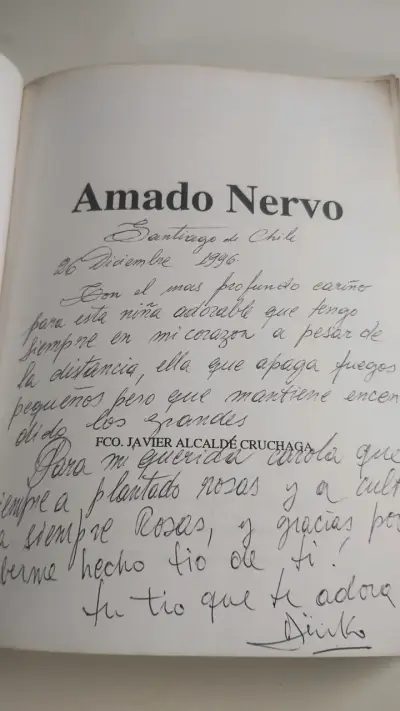 Amado Nervo
Santiago de Chile
26 Diciembre 1996
Con el mas profundo cariño
para esta niña adorable que tengo
siempre en mi corazon a pesar de
la distancia, ella que apaga fuegos
pequeños pero que mantiene encen
dido los grandes
FCO. JAVIER ALCALDE CRUCHAGA
Para mi querida carola que
iempre a plantado rosas y a cult
a siempre Rosas, y gracias por
berme hecho tio de ti!
tu tio que te adora